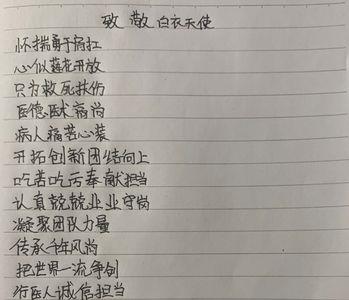 致敬白衣天使
怀揣勇于肩扛
心似莲花开放
只为救死扶伤
医德医术高尚
病人痛苦心装
开拓创新团结向上
吃苦吃亏奉献担当
认真兢兢业业守岗
凝聚团队力量
传承千年风尚
把世界一流争创
行医人诚信担当